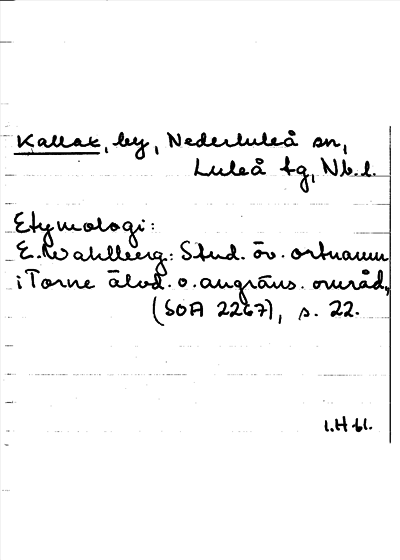 Kallax, by, Nederluleå sn,
Luleå tg, Nb.l.
Etymologi:
E. Wahlberg: Stud. öv. ortnamn
i Torne älvd. o. angräns. områd.,
(SOA 2267), s. 22.
I.H 61.